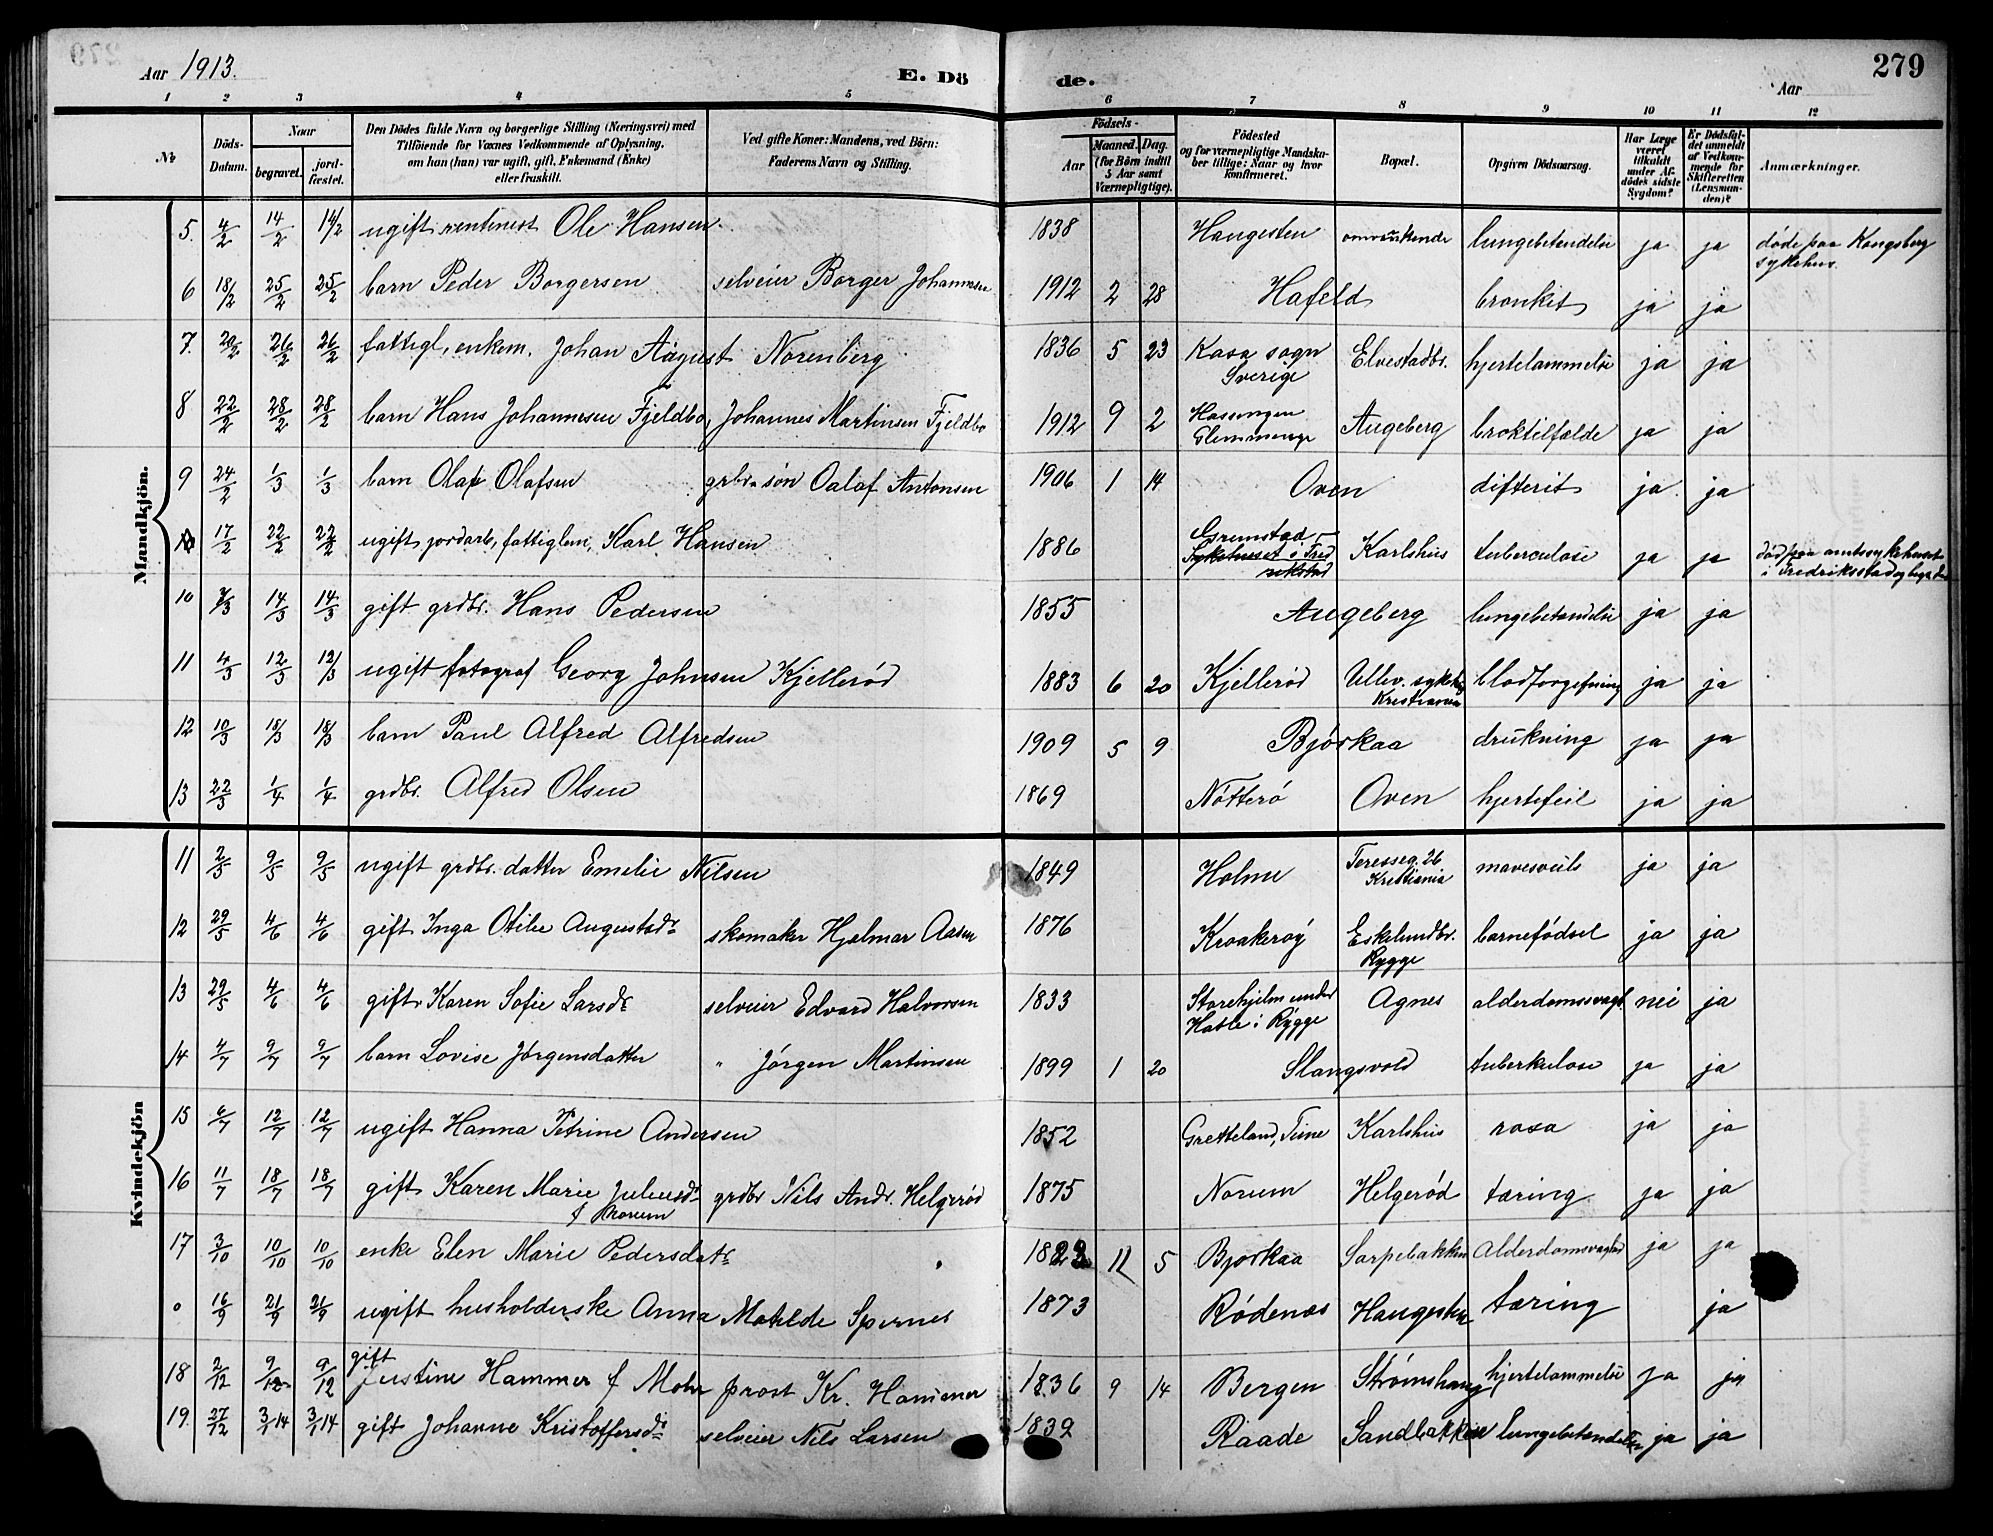 Aar 1913. E. Dö de. Aar 279
1 2 3 4 5 6 7 8 9 10 11 12
№ Döds-Datum. Naar begravet. jord-fæstet. Den Dödes fulde Navn og borgerlige Stilling (Næringsvei) med Tilföiende for Voxnes Vedkommende af Oplysning. om han (hun) var ugift, gift, Enkemand (Enke) eller fraskilt. Ved gifte Koner: Mandens, ved Börn: Faderens Navn og Stilling. Födsels- Aar Maaned. Dag. (for Börn indtil 5 Aar samt Værnepligtige). Födested og for værnepligtige Mandskaber tillige: Naar og hvor konfirmeret. Bopæl. Opgiven Dödsaarsag. Har Læge været tilkaldt under Afdödes sidste Sygdom? Er Dödsfaldet anmeldt af Vedkommende for Skifteretten (Lensmanden)? Anmærkninger.
Mandkjön.
5. 4/2 14/2 14/2 ugift rentenist Ole Hansen. 1838 Haugesten lungebetændelse ja ja døde paa Kongsberg
sykehus.
6 18/2 25/2 25/2 barn Peder Borgersen selveier Borger Johannesen 1912 2 28 Hafeld bronkit ja ja
7. 20/2 26/2 26/2 fattigl, enkem. Johan August Norenberg 1836 5 23 sogn Elvestadbr. hjertelammelse ja ja
Sverige
8 22/2 28/2 28/2 barn Hans Johannesen Fjeldbo, Johannes Martinsen Fjeldbo 1912 9 2 Augeberg broktilfælde ja ja
9 24/2 1/3 1/3 barn Olaf Olafsen grbr. søn Oalof Antonsen 1906 1 14 Oven difterit ja ja
17/2 22/2 22/2 ugift jordarb, fattiglem, Karl Hansen 1886 Grimstad Karlshus tuberculose ja ja død paa amtssykehuset
Sykehuset i Fredrikstad i Fredriksstad
10 7/3 14/3 14/3 gift grdbr. Hans Pedersen 1855 Augeberg lungebetændelse ja ja
11 4/3 12/3 12/3 ugift fotograf Georg Johnsen Kjellerød 1883 6 20 Kjellerød Ullev. sykeh. blodforgiftning ja ja
Kristiania
12 10/3 18/3 18/3 barn Paul Alfred Alfredsen 1909 5 9 Bjørkaa drukning ja ja
13 22/3 1/4 1/4 grdbr. Alfred Olsen 1869 Nøtterø Oven hjertefeil ja ja
Kvindekjön
11 2/5 9/5 9/5 ugift grdbr. datter Emelie Nilsen 1849 Holme Teresseg. 26 ja ja
Kristiania
12 29/5 4/6 4/6 gift Inga Otilie Augustadr skomaker Hjalmar Aasen 1876 Kroakerøy Eskelundbr. barnefødsel ja ja
Rygge
13 29/5 4/6 4/6 gift Karen Sofie Larsdr selveier Edvard Halvorsen 1833 Storehjelm under Agnes alderdomssvagh. nei ja
i Rygge
14 4/7 9/7 9/7 barn Lovise Jørgensdatter " Jørgen Martinsen 1899 1 20 Slangsvold tuberkulose ja ja
15 6/7 12/7 12/7 ugift Hanna Petrine Andersen 1852 Gretteland, Tune Karlshus rosa ja ja
16 11/7 18/7 18/7 gift Karen Marie Juliusdr grdbr Nils Andr. Helgerød 1875 Norum Helgerød tæring ja ja
f Norum
17 3/10 10/10 10/10 enke Elen Marie Pedersdatr 11 5 Bjørkaa Sarpebakken Alderdomssvaghed ja ja
0 16/9 21/9 21/9 ugift husholderske Anna Matilde Spernes 1873 Rødenæs Haugesten tæring ja
gift
18 2/12 9/12 9/12 Justine Hammer f Mohr prost Kr. Hammer 1836 9 14 Bergen Strømshaug hjertelammelse ja ja
19. 27/12 3/1 14 3/1 14 gift Johanne Kristoffersdr selveier Nils Larsen 1839 Raade Sandbakken lungebetændelse ja ja